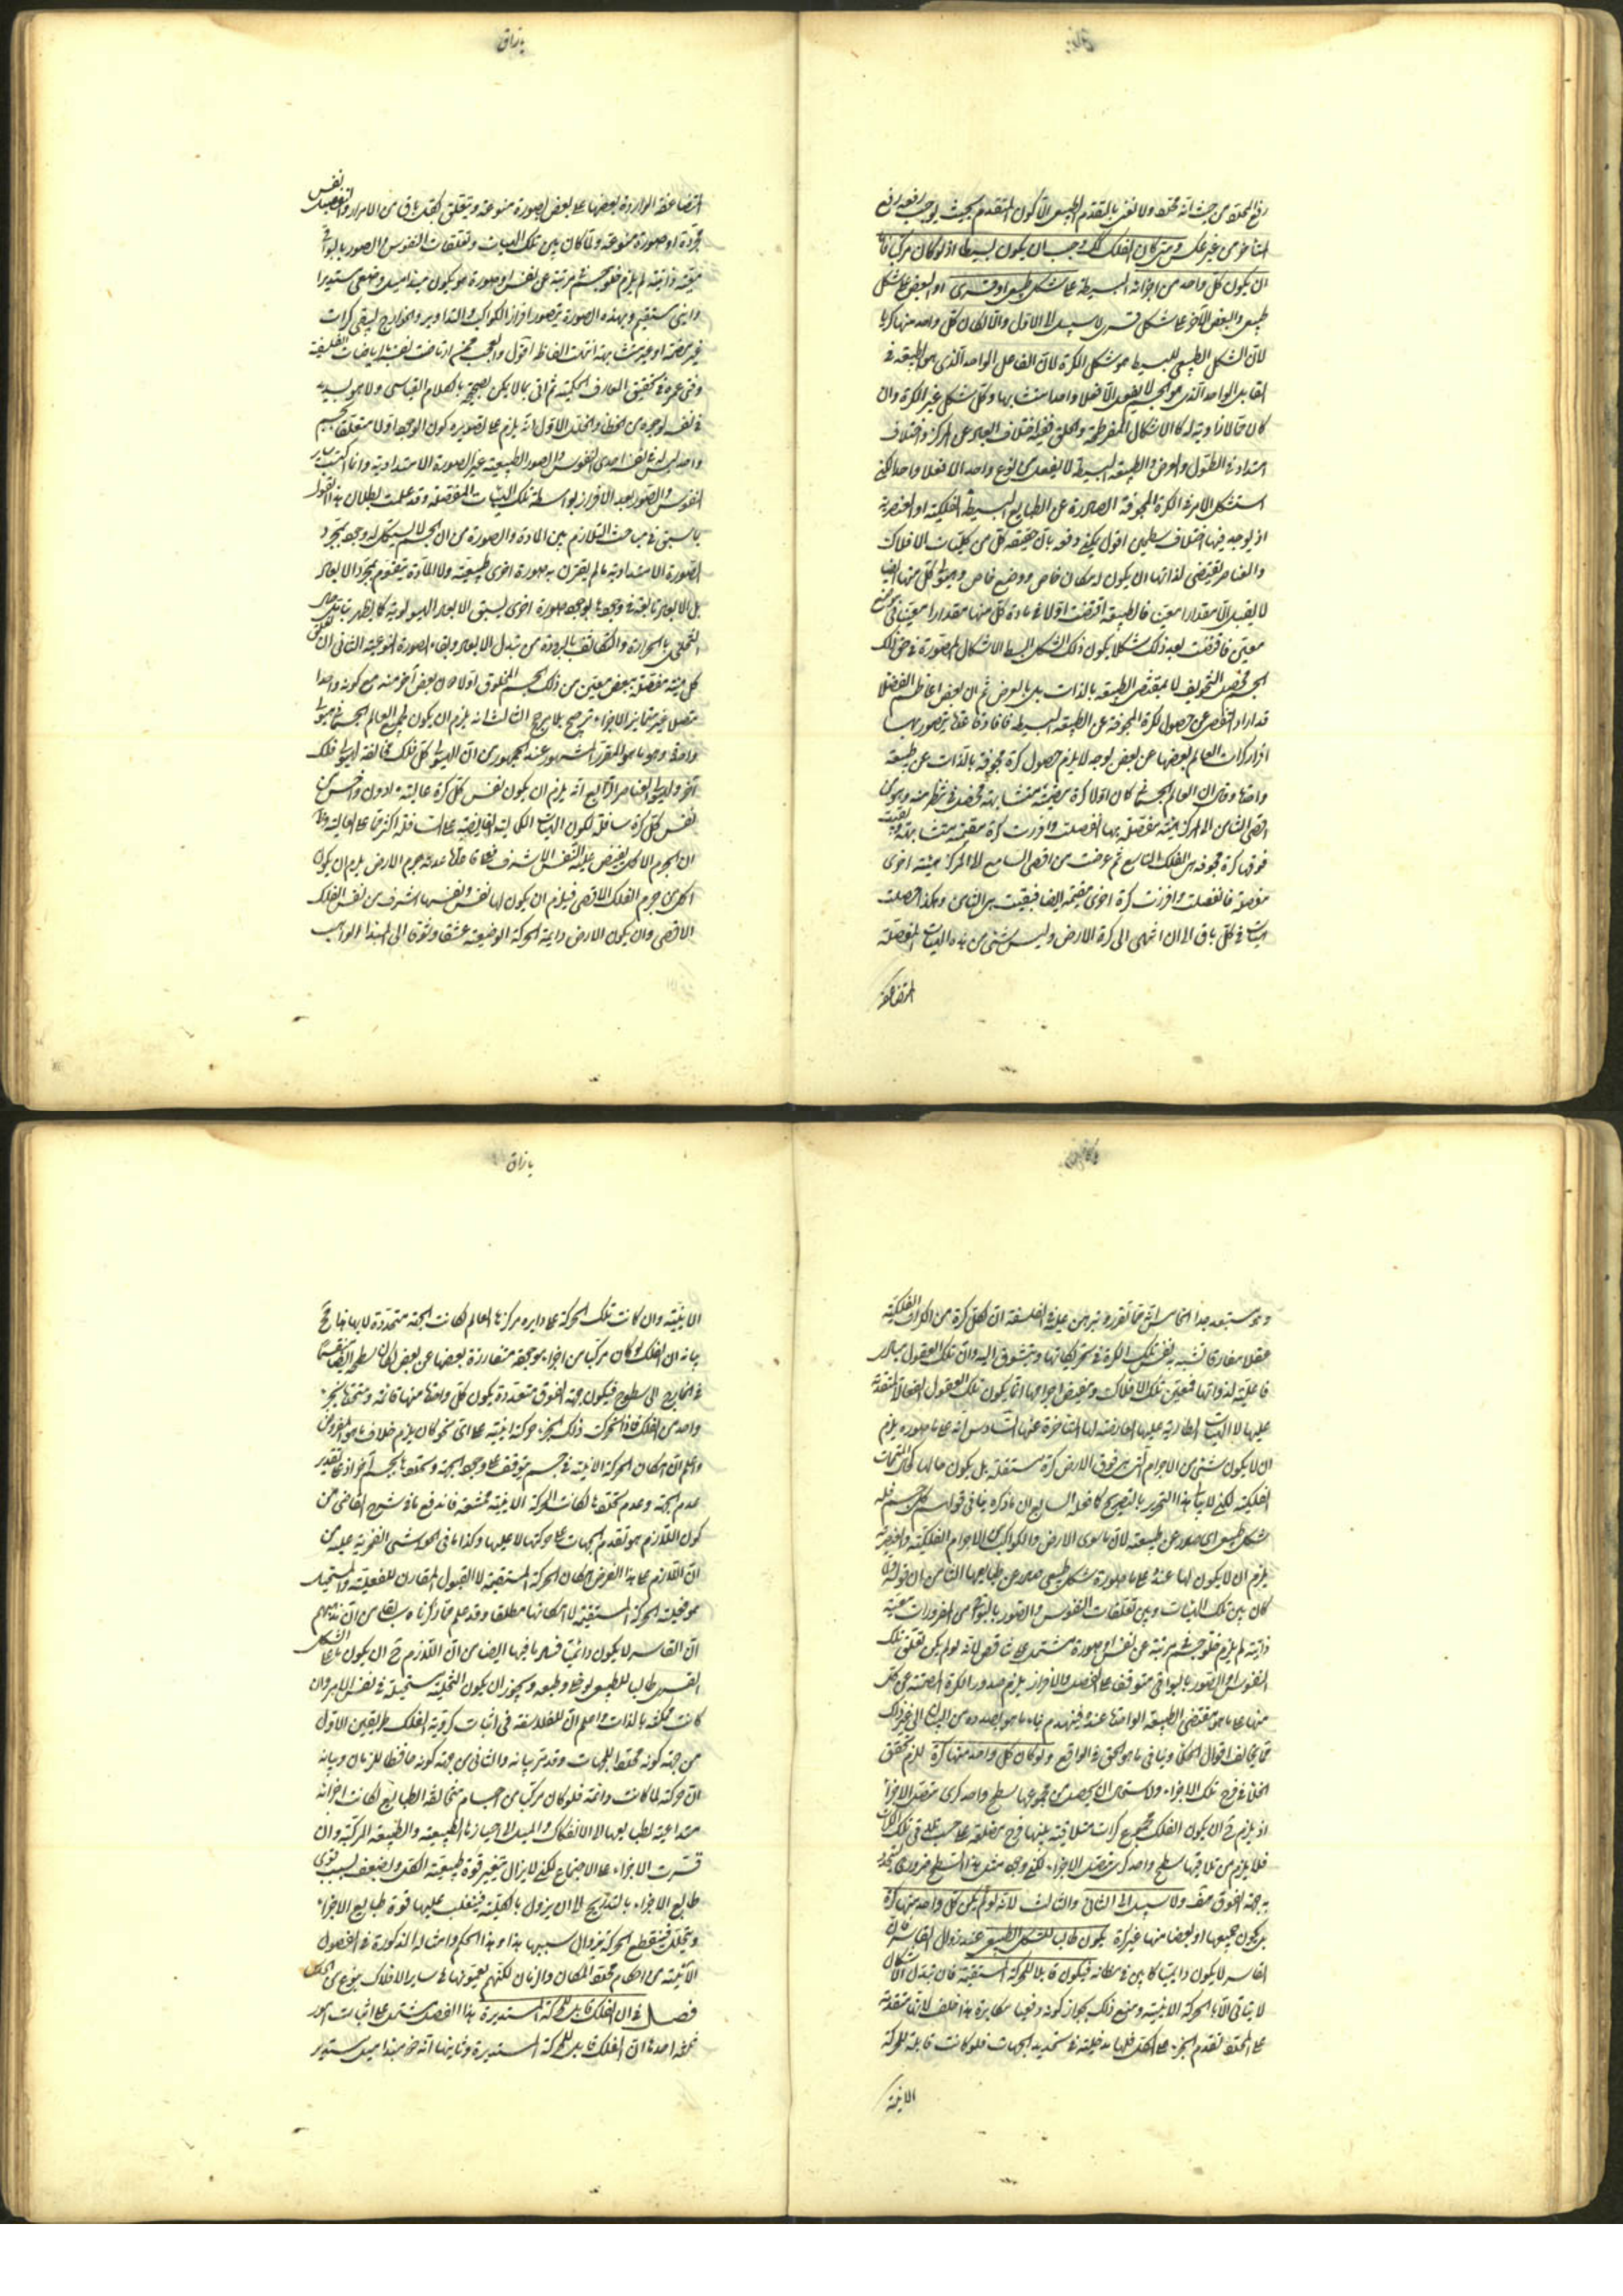 رفع المحدد من حيث انه محدد ولا نعنى بالمتقدم بالطبع الا كون المتقدم بحيث يوجب رفعه رفع
المتاخر من غير عكس ومتى كان الفلك كذلك وجب ان يكون بسيطا اذ لو كان مركبا فاما
ان يكون كل واحد من اجزائه البسيطة على شكل طبيعى او قسرى او البعض على شكل
طبيعى والبعض الآخر على شكل قسرى لا سبيل الى الاول والا لكان كل واحد منها كريا
لان الشكل الطبيعى للبسيط هو شكل الكرة لان الفاعل الواحد الذى هو الطبيعة فى
القابل الواحد الذى هو الجسم لا يفعل الا فعلا واحدا متشابها وكل شكل غير الكرة وان
امتداد فى الطول والعرض والطبيعة البسيطة لا يفعل من نوع واحد الا فعلا واحدا لكن
استشكل الامر فى الكرة المجوفة الصادرة عن الطبايع البسيطة الفلكية او العنصرية
اذ يوجد فيها اختلاف سطحين اقول يمكن دفعه بان حقيقة كل من كليات الافلاك
والعناصر يقتضى لذاتها ان يكون له مكان خاص ووضع خاص وهيولى كل منها ايضا
لا يقبل الا مقدارا معينا فالطبيعة اقتضت اولا فى مادة كل منها مقدارا معينا فى موضع
معين فاقتضت بعد ذلك شكلا يكون ذلك الشكل ابسط الاشكال المتصورة فى حق ذلك
الجسم فحصل التجويف لا بمقتضى الطبيعة بالذات بل بالعرض ثم ان بعض اعاظم الفضلا
قد اراد التفصى عن حصول الكرة المجوفة عن الطبيعة البسيطة
افراز كرات العالم بعضها عن بعض بوجه لا يلزم حصول كرة مجوفة بالذات عن طبيعة
واحدة وقال ان العالم الجسمانى كان اولا كرة مصمتة متشابهة فحصل
فوقها كرة مجوفة هى الفلك التاسع ثم عرضت من اقصى السابع الى المركز هيئة اخرى
مفصلة فانفصلت وافرزت كرة اخرى مصمتة ايضا فبقيت هى الثامن وهكذا حصلت
الهيئات فى كل باق الى ان انتهى الى كرة الارض وليس شئ من هذه الهيئات المفصلة
المتضاعفة
المتضاعفة الواردة بعضها على بعض لصورة منوعة ويتعلق بكل باق من الافراز والتفصيل نفس
مجردة او صورة منوعة ولما كان بين تلك الهيئات وتعلقات النفوس او الصور بالبواقى
معية ذاتية لم يلزم خلو جسم مرتبة عن نفس او صورة هو يكون مبدا ميل وضعى مستديرا
واينى مستقيم وبهذه الصورة يتصور افراز الكواكب والتداوير والخوارج ليبقى كرات
غير مصمتة او غير متشابهة انتهت الفاظه اقول والعجب ممن ارتاضت نفسه بالرياضيات الفلسفية
وفنى عمره فى تحقيق المعارف الحكمية ثم اتى بما لا يمكن تصحيحه بالكلام القياسى ولا هو بسديد
فى نفسه لوجوه من الخطا والخلل الاول انه يلزم على تصويره كون الوجود اولا متعلقا بجسم
واحد ليس له فى نفسه احدى النفوس والصور الطبيعية غير الصورة الامتدادية وانما اكتسب ساير
النفوس والصور بعد الافراز بواسطة تلك الهيئات المفصلة وقد علمت بطلان هذا القول
بما سبق فى مباحث التلازم بين المادة والصورة من ان الجسم لا يستكمل له وجود بمجرد
الصورة الامتدادية ما لم يقترن به صورة اخرى طبيعية ولا المادة يتقوم بمجرد الابعاد
بل الابعاد تابعة فى وجودها لوجود صورة اخرى يسبق الابعاد الهيولوية كما يظهر
التخلخل بالحرارة والتكاثف بالبرودة من تبدل الابعاد وبقاء الصورة النوعية الثانى ان تعلق
كل هيئة مفصلة ببعض معين من ذلك الجسم المخلوق اولا دون بعض آخر منه مع كونه واحدا
متصلا غير متمايز الاجزاء ترجيح بلا مرجح الثالث انه يلزم ان يكون لجميع العالم الجسمانى هيولى
واحدة وهو ما هو المقرر المشهور عند الجمهور من ان الهيولى كل فلك مخالفة لهيولى فلك
آخر ولهيولى العناصر الرابع انه يلزم ان يكون نفس كل كرة عالية ادون واخس من
نفس كل كرة سافلة لكون الهيئات الكمالية الفايضة على السافلة اكثر مما على العالية
ان الجرم الاكمل يفيض عليه النفس الاشرف
اكمل من جرم الفلك الاقصى فيلزم ان يكون لها نفس ونفسها اشرف من نفس الفلك
الاقصى وان يكون الارض دايمة الحركة الوضعية عشقا وشوقا الى المبدا الواجب
وهو مستبعد جدا الخامس انه مما تقرر وتبرهن عليه فى الفلسفة ان لكل كرة من الكرات الفلكية
عقلا مفارقا تشبه به نفس تلك الكرة فى تحريكاتها ويتشوق اليه وان تلك العقول مبادى
فاعلية لذواتها فتعين تلك الافلاك وتخصيص اجرامها انما يكون بتلك العقول الفعالة المتقدمة
عليها لا الهيئات الطارية عليها العارضة لها المتاخرة عنها السادس انه على ما صوره يلزم
ان لا يكون شئ من الاجرام التى هى فوق الارض كرة مستقلة بل يكون حالها كحال المتممات
الفلكية لكنه لا بهذا التحرير بالتصريح كما فعله السابع ان ما ذكره ينافى قولهم كل جسم فله
شكل طبيعى اى صدور عن طبيعته لان ما سوى الارض والكواكب من الاجرام الفلكية والعنصرية
يلزم ان لا يكون لها عنده على ما صوره شكل طبيعى صدر عن طبايعها الثامن ان قوله ولما
كان بين تلك الهيئات وبين تعلقات النفوس والصور بالبواقى من المفروزات معية
ذاتية لم يلزم خلو جسم مرتبة عن نفس او صورة مشتمل على تناقض لانه لو لم يكن تعلق تلك
النفوس او الصور بالبواقى متوقفة على الفصل والافراز يلزم صدور الكرة المصمتة عن كل
منها على ما هو مقتضى الطبيعة الواحدة عنده فينهدم بناء ما هو بصدده من البيان الى غير ذلك
مما يخالف اقوال الحكماء وينافى ما هو الحق فى الواقع ولو كان كل واحد منها كرة للزم تحقق
الخلا فى فرج تلك الاجزاء ولاستحال ان يحصل من مجموعها سطح واحد كرى متصل الاجزاء
اذ يلزم ح ان يكون الفلك مجموع كرات متلاقية بينها فرج مضلعة على حسب تلاقى تلك الكرات
فلا يلزم من تلاقيها سطح واحد كرى متصل الاجزاء لكن وجود مثل هذا السطح ضرورى لتحدد
به جهة الفوق هف ولا سبيل الى الثانى والثالث لانه لو لم يكن كل واحد منها كرة
بل يكون جميعها او بعض منها غير كرة يكون طالبا للشكل الطبيعى عند زوال القاسر لان
القاسر لا يكون دايميا كما بين فى مظانه فيكون قابلا للحركة المستقيمة فان تبدل الاشكال
لا يتاتى الا بالحركة الاينية ومنع ذلك بجواز كونه دفعيا مكابرة هذا خلف لانها متقدمة
على المحدد تقدم الجزء على الكل فلها مدخلية فى تحديد الجهات فلو كانت قابلة للحركة
الاينية
الاينية وان كانت تلك الحركة على دايرة مركزها العالم لكانت الجهة متحددة لا بها فانا نح
بيانه ان الفلك لو كان مركبا من اجزاء موجودة متفارزة بعضها عن بعض لكان سطحه ايضا منقسما
فى الخارج الى سطوح فيكون جهة الفوق متعددة يكون كل واحدة منها قائمة ومتحددة بجزء
واحد من الفلك فاذا تحركت ذلك الجزء حركة اينية على اى نحو كان يلزم خلاف ما هو المفروض
واعلم ان امكان الحركة الاينية فى جسم متوقف على وجود الجهة وتحددها بجسم آخر اذ على تقدير
عدم الجهة وعدم تحددها لكانت الحركة الاينية ممتنعة فاندفع ما فى شرح القاضى من
كون اللازم هو تقدم الجهات على حركتها لا عليها وكذا ما فى الحواشى الفخرية عليه من
ان اللازم على هذا الفرض امكان الحركة المستقيمة لا القبول المقارن للفعلية والمستحيل
هو فعلية الحركة المستقيمة لا امكانها مطلقا وقد علم مما ذكرناه سابقا من ان مذهبهم
ان القاسر لا يكون دائميا فساد ما فيها ايضا من ان اللازم ح ان يكون ما على الشكل
القسرى طالبا للطبيعى لو خلى وطبعه ويجوز ان يكون التخلية مستحيلة فى نفس الامر وان
كانت ممكنة بالذات واعلم ان للفلاسفة فى اثبات كروية الفلك طريقين الاول
من جهة كونه محددا للجهات وقد مر بيانه والثانى من جهة كونه حافظا للزمان وبيانه
ان حركته لما كانت دائمة فلو كان مركبا من اجسام مختلفة الطبايع لكانت اجزائه
متداعية لطبايعها الى الانفكاك والميل الى احيازها الطبيعية والطبيعة المركبة وان
قسرت الاجزاء على الاجتماع لكن لا يزال يتغير قوة طبيعية الكل ويضعف بسبب قوى
طبايع الاجزاء بالتدريج الى ان يزول بالكلية فيغلب عليها قوة طبايع الاجزاء
ويتحلل فينقطع الحركة بزوال سببها هذا وهذا الحكم وامثاله المذكورة فى الفصول
الآتية من احكام محدد المكان والزمان لكنهم يعدونها فى ساير الافلاك بنوع من الحدس
فصل فى ان الفلك قابل للحركة المستديرة هذا الفصل مشتمل على اثبات امور
ثلثة احدها ان الفلك قابل للحركة المستديرة وثانيها انه ذو مبدا ميل مستدير